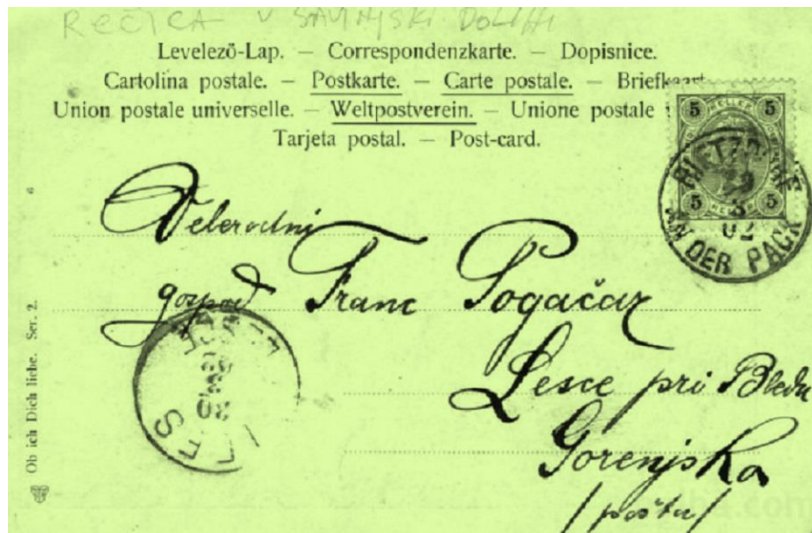 REČICA V SAVINJSKI DOLINI
Levelező-Lap. — Correspondenzkarte. — Dopisnice.
Cartolina postale. — Postkarte. — Carte postale. — Briefkaart
Union postale universelle. — Weltpostverein. — Unione postale
Tarjeta postal. — Post-card.
5 HELLER 5
5 HELLER 5
RIETZDORF
29
3
02
AN DER PACK
Velerodni
gospod Franc Pogačar
Lesce pri Bledu
Gorenjska
/pošta/
LEES
Ob ich Dich liebe. Ser. 2.